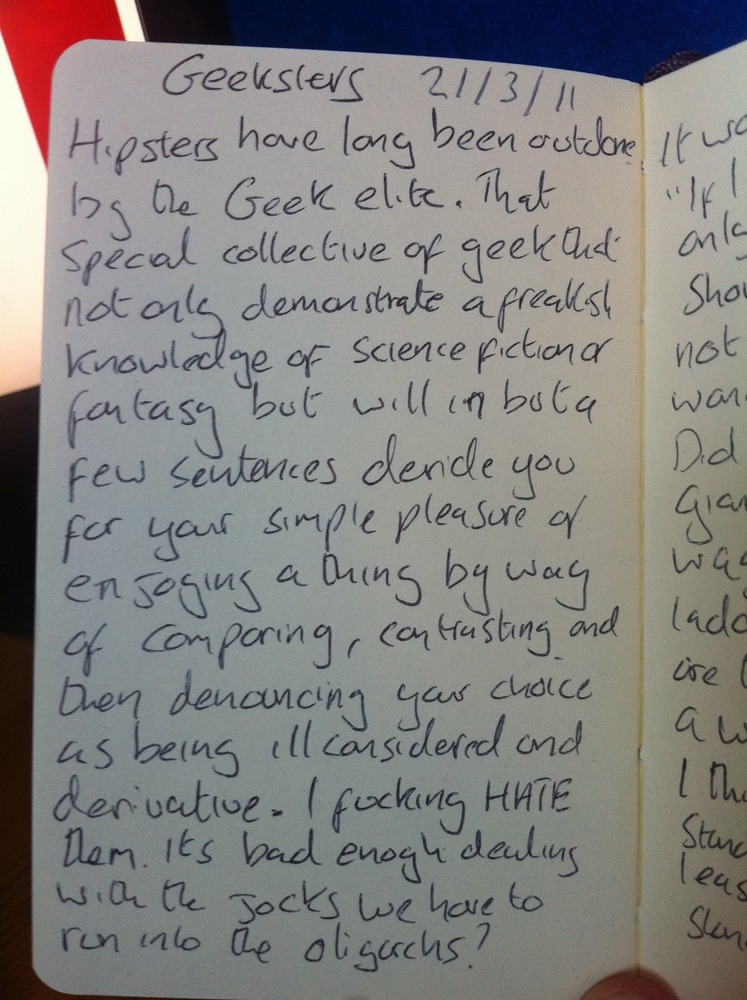 Geeksters 21/3/11
Hipsters have long been outdone
by the Geek elite. That
special collective of geek that
not only demonstrate a freakish
knowledge of science fiction or
fantasy but will in but a
few sentences deride you
for your simple pleasure of
enjoying a thing by way
of comparing, contrasting and
then denouncing your choice
as being ill considered and
derivative. I fucking HATE
them. Its bad enogh dealing
with the jocks we have to
run into the oligarchs?
It
"If I
only
not
Did
a
I